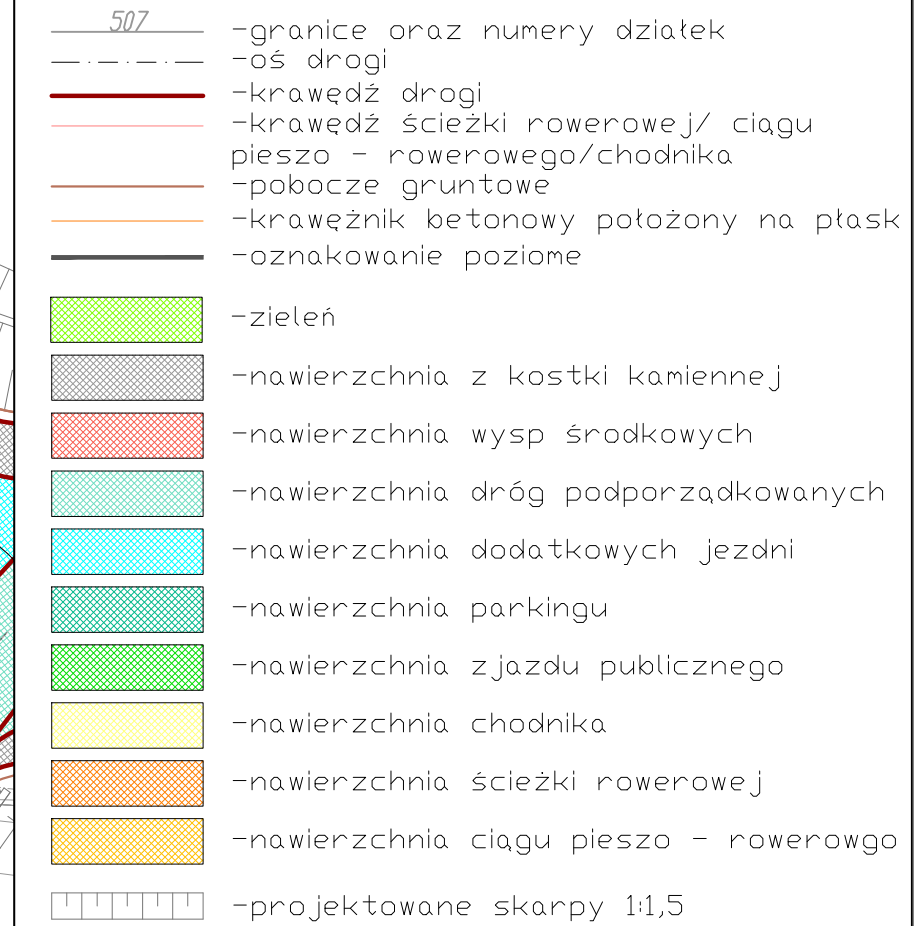 507
-granice oraz numery działek
-oś drogi
-krawędź drogi
-krawędź ścieżki rowerowej/ ciągu
pieszo - rowerowego/chodnika
-pobocze gruntowe
-krawężnik betonowy położony na płask
-oznakowanie poziome
-zieleń
-nawierzchnia z kostki kamiennej
-nawierzchnia wysp środkowych
-nawierzchnia dróg podporządkowanych
-nawierzchnia dodatkowych jezdni
-nawierzchnia parkingu
-nawierzchnia zjazdu publicznego
-nawierzchnia chodnika
-nawierzchnia ścieżki rowerowej
-nawierzchnia ciągu pieszo - rowerowgo
-projektowane skarpy 1:1,5